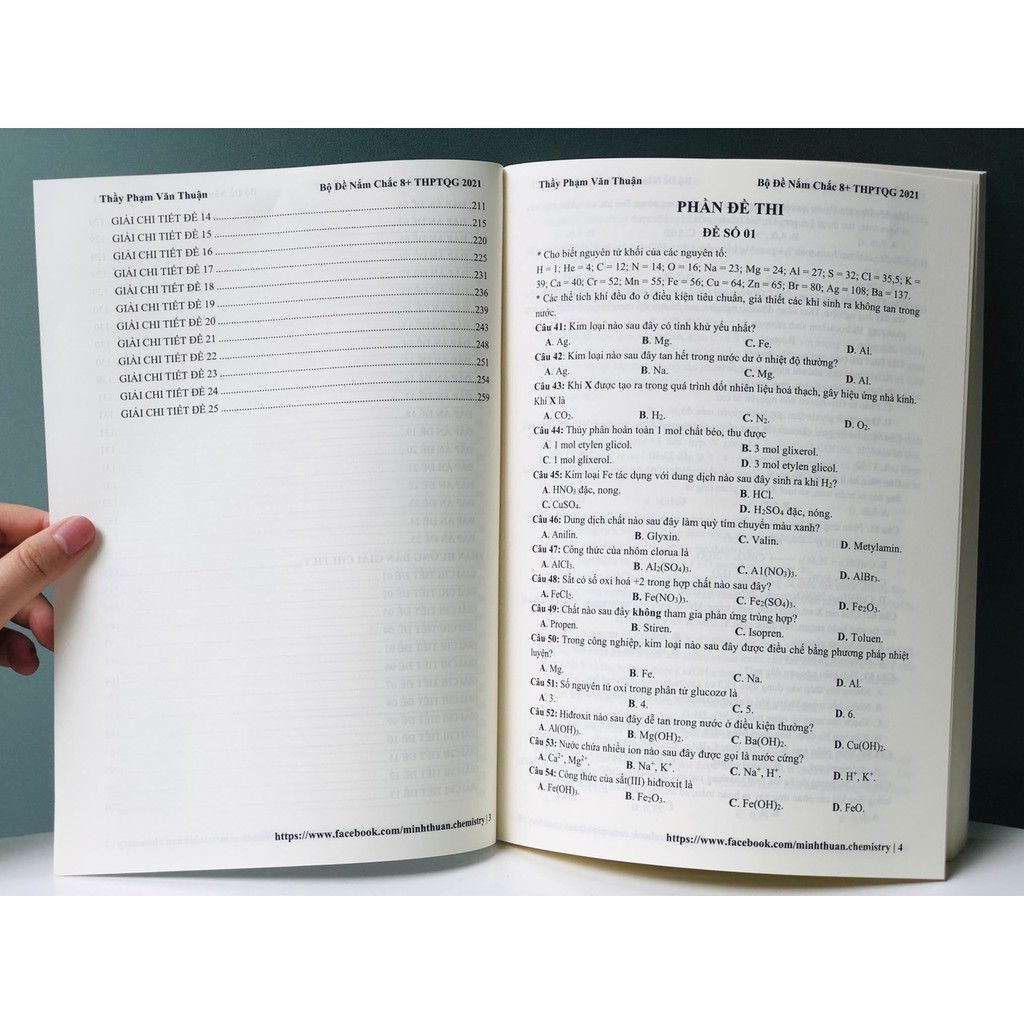 Thầy Phạm Văn Thuận Bộ Đề Nắm Chắc 8+ THPTQG 2021
GIẢI CHI TIẾT ĐỀ 14 ........ 211
GIẢI CHI TIẾT ĐỀ 15 ........ 215
GIẢI CHI TIẾT ĐỀ 16 ........ 220
GIẢI CHI TIẾT ĐỀ 17 ........ 225
GIẢI CHI TIẾT ĐỀ 18 ........ 231
GIẢI CHI TIẾT ĐỀ 19 ........ 236
GIẢI CHI TIẾT ĐỀ 20 ........ 239
GIẢI CHI TIẾT ĐỀ 21 ........ 243
GIẢI CHI TIẾT ĐỀ 22 ........ 248
GIẢI CHI TIẾT ĐỀ 23 ........ 251
GIẢI CHI TIẾT ĐỀ 24 ........ 254
GIẢI CHI TIẾT ĐỀ 25 ........ 259
https://www.facebook.com/minhthuan.chemistry | 3
Thầy Phạm Văn Thuận Bộ Đề Nắm Chắc 8+ THPTQG 2021
PHẦN ĐỀ THI
ĐỀ SỐ 01
* Cho biết nguyên tử khối của các nguyên tố:
H = 1; He = 4; C = 12; N = 14; O = 16; Na = 23; Mg = 24; Al = 27; S = 32; Cl = 35,5; K =
39; Ca = 40; Cr = 52; Mn = 55; Fe = 56; Cu = 64; Zn = 65; Br = 80; Ag = 108; Ba = 137.
* Các thể tích khí đều đo ở điều kiện tiêu chuẩn, giả thiết các khí sinh ra không tan trong
nước.
Câu 41: Kim loại nào sau đây có tính khử yếu nhất?
A. Ag. B. Mg. C. Fe. D. Al.
Câu 42: Kim loại nào sau đây tan hết trong nước dư ở nhiệt độ thường?
A. Ag. B. Na. C. Mg. D. Al.
Câu 43: Khí X được tạo ra trong quá trình đốt nhiên liệu hoá thạch, gây hiệu ứng nhà kính.
Khí X là
A. CO₂. B. H₂. C. N₂. D. O₂.
Câu 44: Thủy phân hoàn toàn 1 mol chất béo, thu được
A. 1 mol etylen glicol. B. 3 mol glixerol.
C. 1 mol glixerol. D. 3 mol etylen glicol.
Câu 45: Kim loại Fe tác dụng với dung dịch nào sau đây sinh ra khí H₂?
A. HNO₃ đặc, nóng. B. HCl.
C. CuSO₄. D. H₂SO₄ đặc, nóng.
Câu 46: Dung dịch chất nào sau đây làm quỳ tím chuyển màu xanh?
A. Anilin. B. Glyxin. C. Valin. D. Metylamin.
Câu 47: Công thức của nhôm clorua là
A. AlCl₃. B. Al₂(SO₄)₃. C. A1(NO₃)₃. D. AlBr₃.
Câu 48: Sắt có số oxi hoá +2 trong hợp chất nào sau đây?
A. FeCl₂. B. Fe(NO₃)₃. C. Fe₂(SO₄)₃. D. Fe₂O₃.
Câu 49: Chất nào sau đây không tham gia phản ứng trùng hợp?
A. Propen. B. Stiren. C. Isopren. D. Toluen.
Câu 50: Trong công nghiệp, kim loại nào sau đây được điều chế bằng phương pháp nhiệt
luyện?
A. Mg. B. Fe. C. Na. D. Al.
Câu 51: Số nguyên tử oxi trong phân tử glucozơ là
A. 3. B. 4. C. 5. D. 6.
Câu 52: Hiđroxit nào sau đây dễ tan trong nước ở điều kiện thường?
A. Al(OH)₃. B. Mg(OH)₂. C. Ba(OH)₂. D. Cu(OH)₂.
Câu 53: Nước chứa nhiều ion nào sau đây được gọi là nước cứng?
A. Ca²⁺, Mg²⁺. B. Na⁺, K⁺. C. Na⁺, H⁺. D. H⁺, K⁺.
Câu 54: Công thức của sắt(III) hiđroxit là
A. Fe(OH)₃. B. Fe₂O₃. C. Fe(OH)₂. D. FeO.
https://www.facebook.com/minhthuan.chemistry | 4